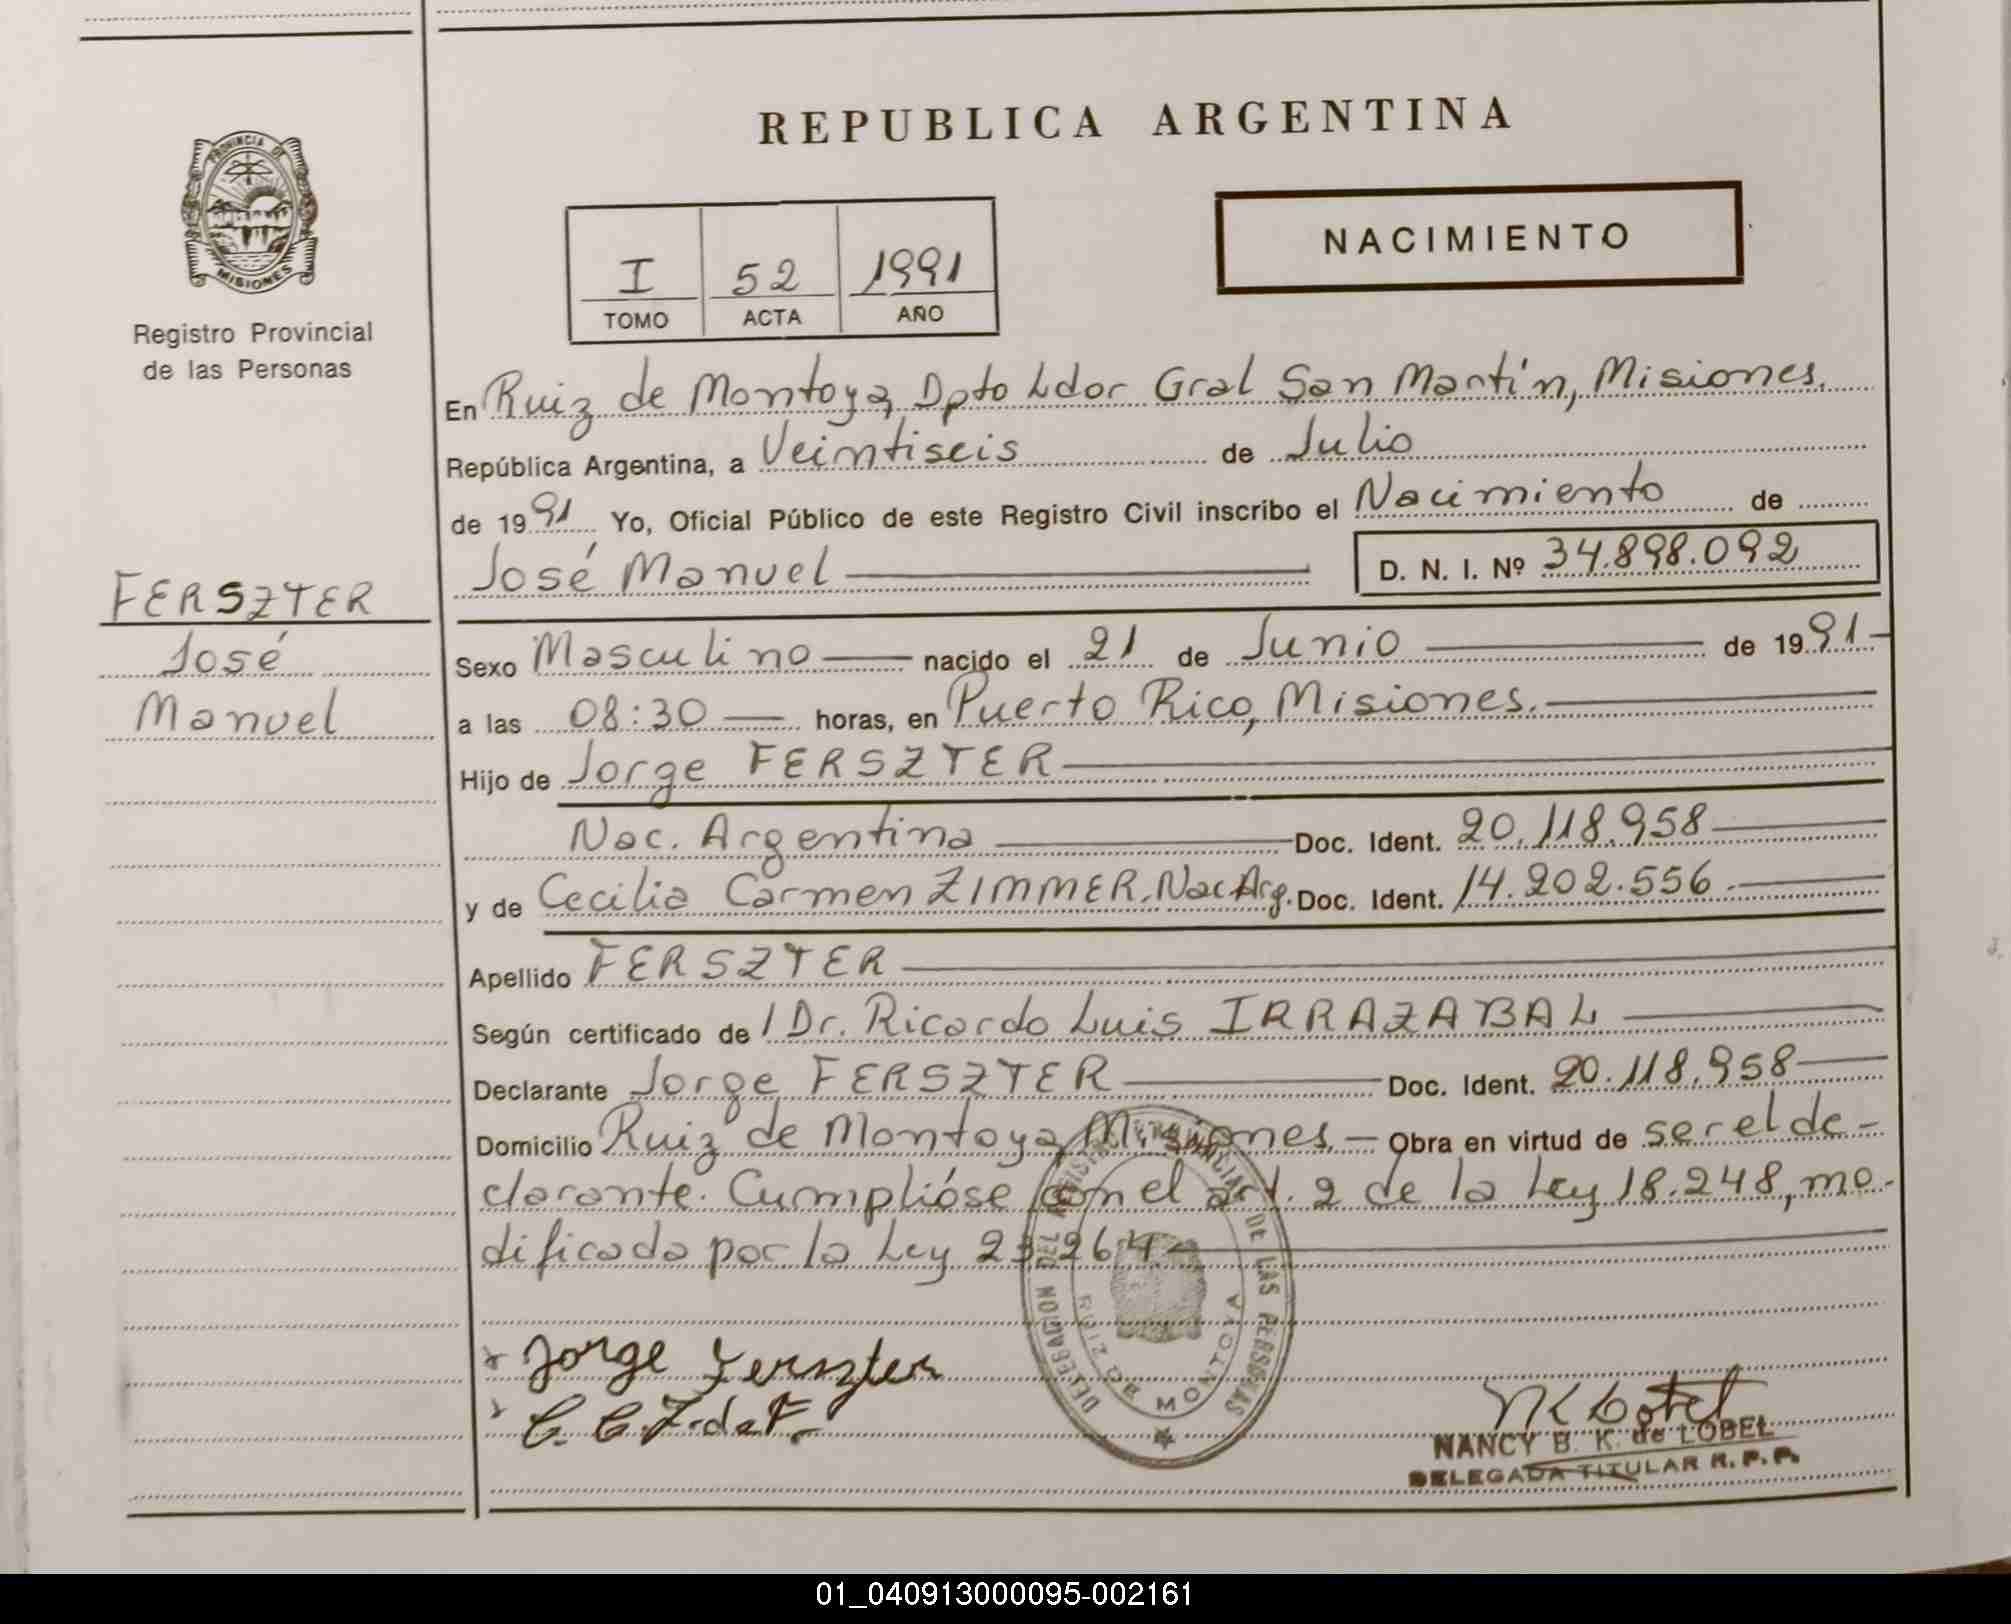 REPUBLICA ARGENTINA
PROVINCIA DE
MISIONES
Registro Provincial
de las Personas
I 52 1991
TOMO ACTA AÑO
NACIMIENTO
En Ruiz de Montoya, Dpto Ldor Gral San Martín, Misiones.
República Argentina, a Veintiseis de Julio
de 1991 Yo, Oficial Público de este Registro Civil inscribo el Nacimiento de
José Manuel D. N. I. Nº 34.898.092
FERSZTER
José
Manuel
Sexo Masculino nacido el 21 de Junio de 1991
a las 08:30 horas, en Puerto Rico, Misiones.
Hijo de Jorge FERSZTER
Nac. Argentina Doc. Ident. 20.118.958
y de Cecilia Carmen ZIMMER. Nac Arg. Doc. Ident. 14.202.556.
Apellido FERSZTER
Según certificado de Dr. Ricardo Luis IRRAZABAL
Declarante Jorge FERSZTER Doc. Ident. 20.118.958
Domicilio Ruiz de Montoya, Misiones. — Obra en virtud de ser el de-
clarante. Cumplióse con el art. 2 de la Ley 18.248, mo-
dificada por la Ley 23.264
DELEGACION DEL REGISTRO PROVINCIAL DE LAS PERSONAS
RUIZ DE MONTOYA
Jorge Ferszter
C. C. Z. de F.
NANCY B. K. de LOBEL
DELEGADA TITULAR R. P. P.
01_040913000095-002161